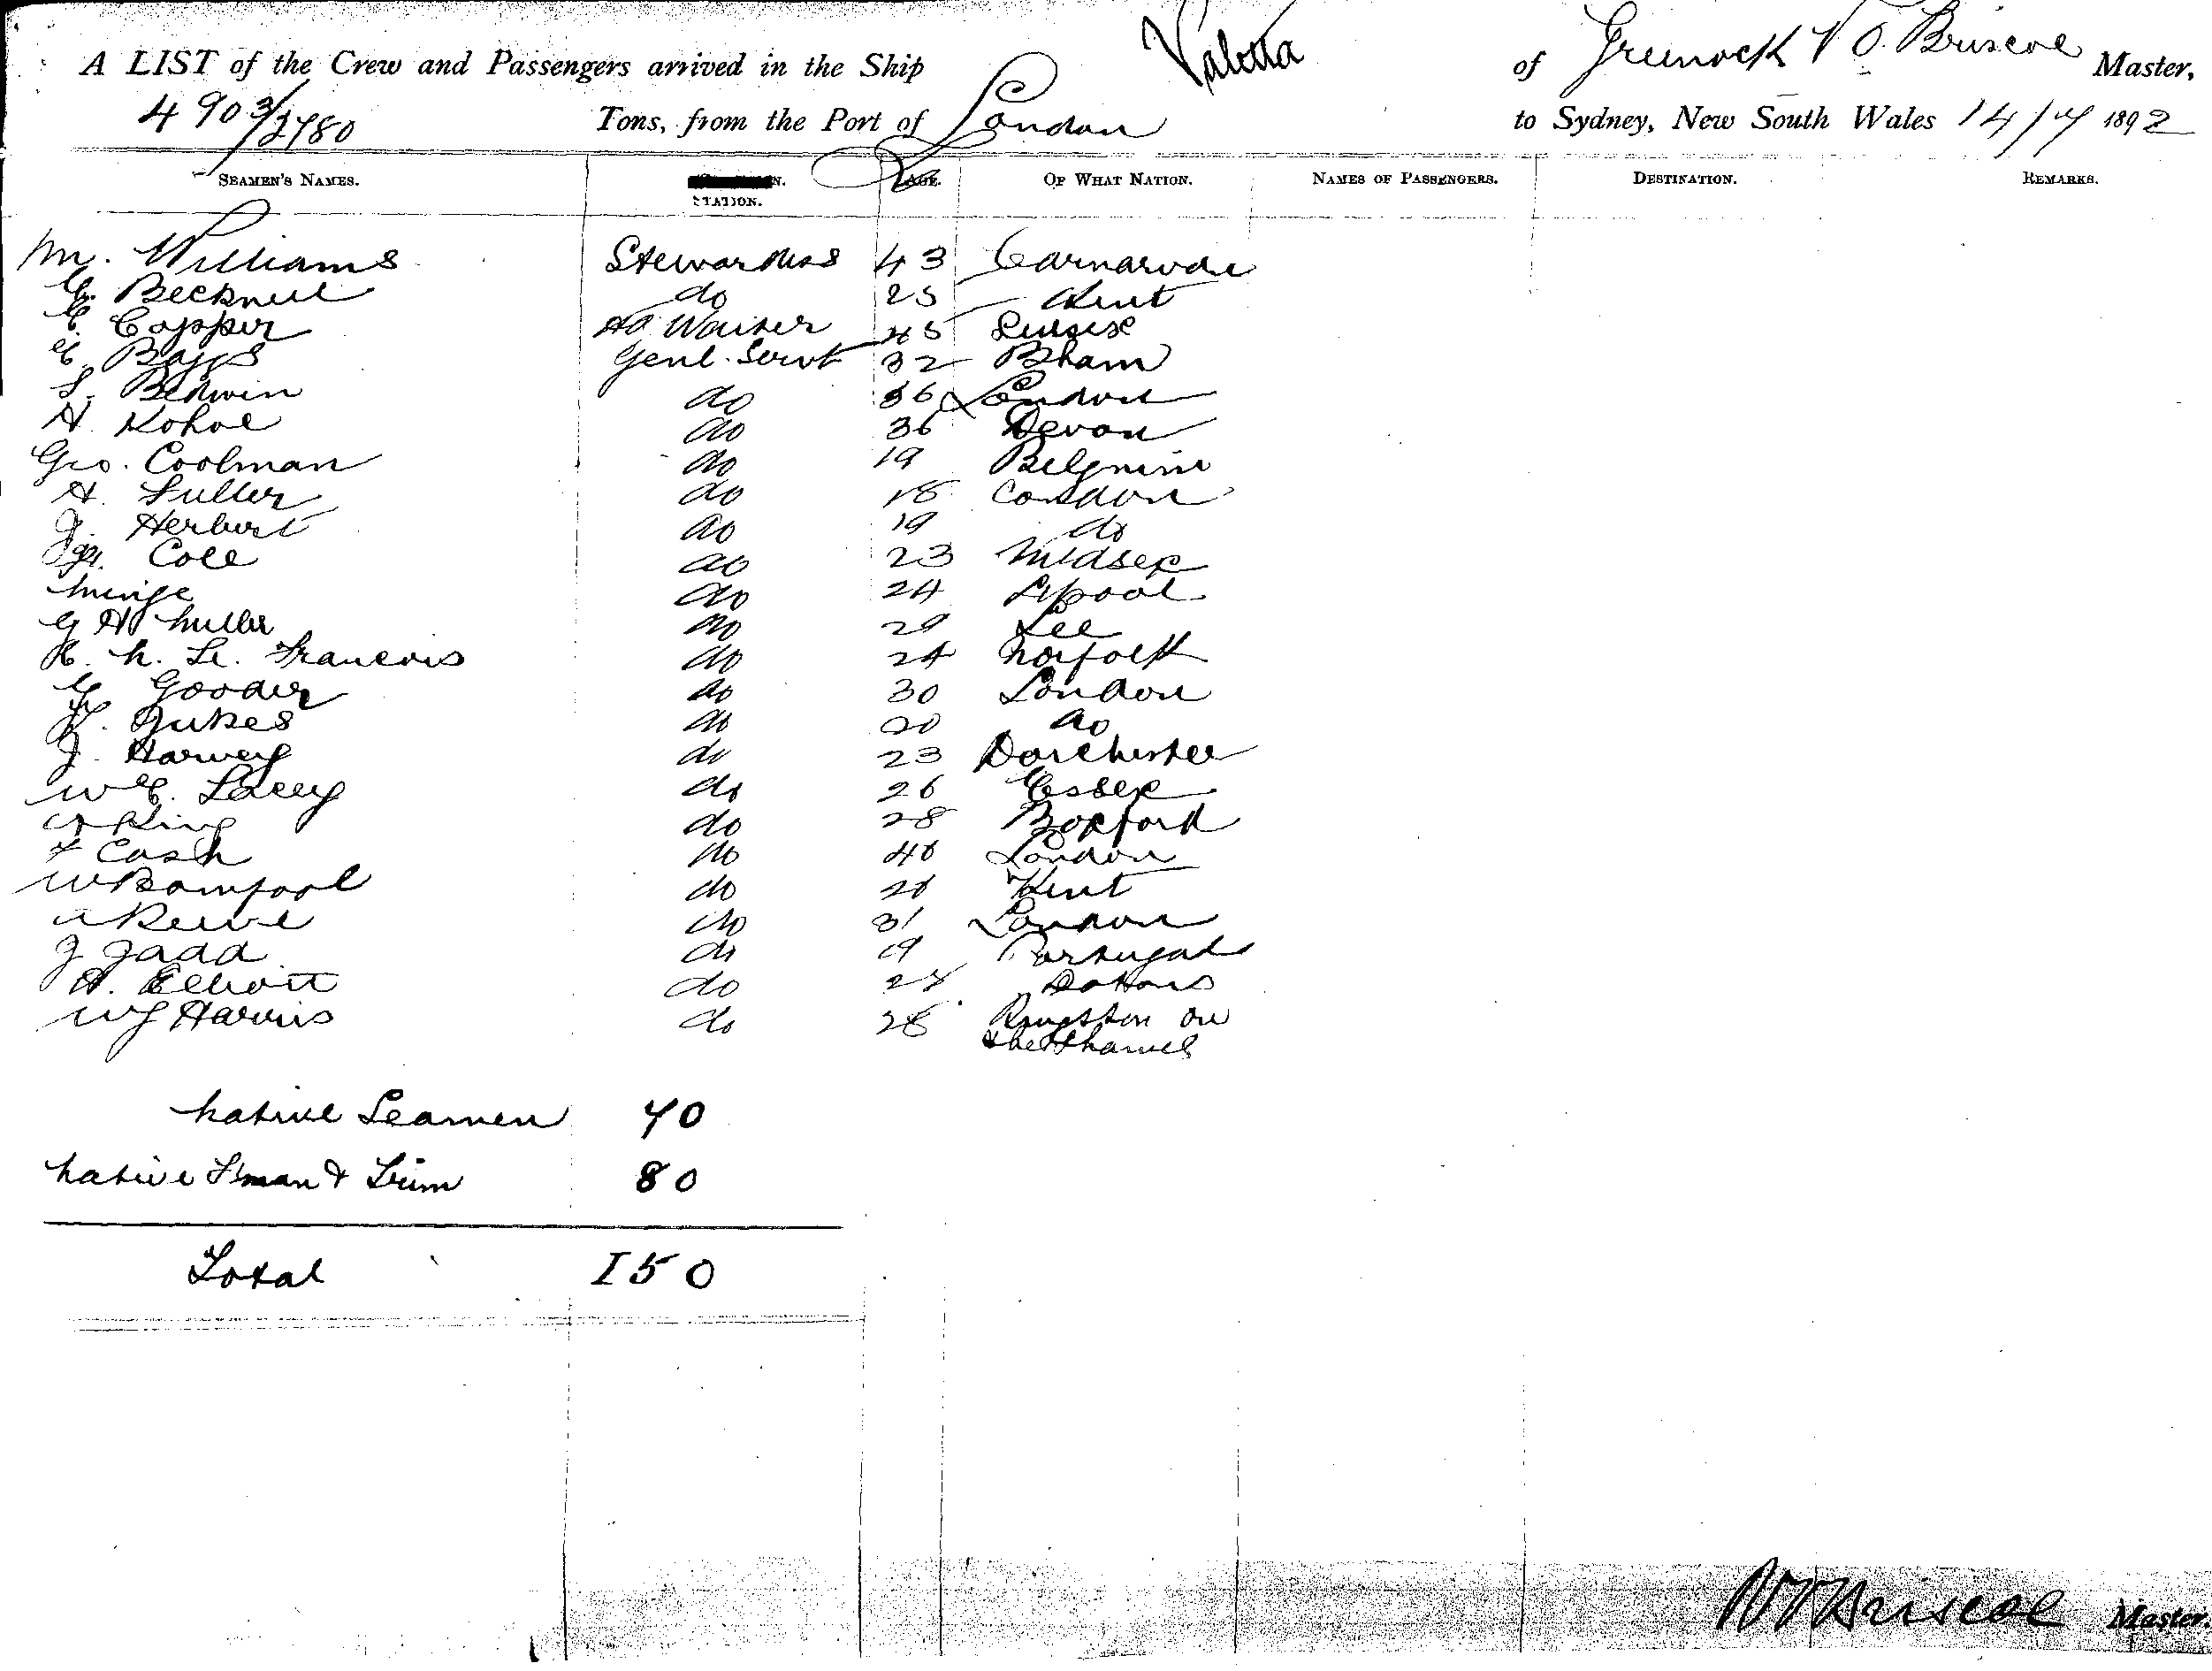 A LIST of the Crew and Passengers arrived in the Ship Valetta of Greenock O. Briscoe Master,
4903/2780 Tons, from the Port of London to Sydney, New South Wales 14/7 1892
SEAMEN'S NAMES. STATION. AGE. OF WHAT NATION. NAMES OF PASSENGERS. DESTINATION. REMARKS.
M. Williams Stewardess 43 Carnarvon
Becknell do 25 Kent
C. Copper Hd Waiter 45 Sussex
Baggs Genl. Servt 32 Bham
S. Bedwin do 36 London
H. Kohoe do 36 Devon
Geo. Coolman do 19 Belgium
A. Fuller do 18 London
J. Herbert do 19 do
Cole do 23 Midsex
Minge do 24 Lpool
G H Muller do 29 Lee
R. M. Le. Francois do 24 Norfolk
G. Gooder do 30 London
F. Jukes do 20 do
J. Harvey do 23 Dorchester
W E. Lacey do 26 Essex
A King do 28 Boxford
F Cash do 40 London
W Bampool do 28 Kent
A Reeve do 31 London
J Jadd do 19 Portugal
H. Elliott do 27
W J Harris do 28 Kingston on
the Thames
Native Seamen 70
Native Fman & Trim 80
Total 150
Briscoe Master.